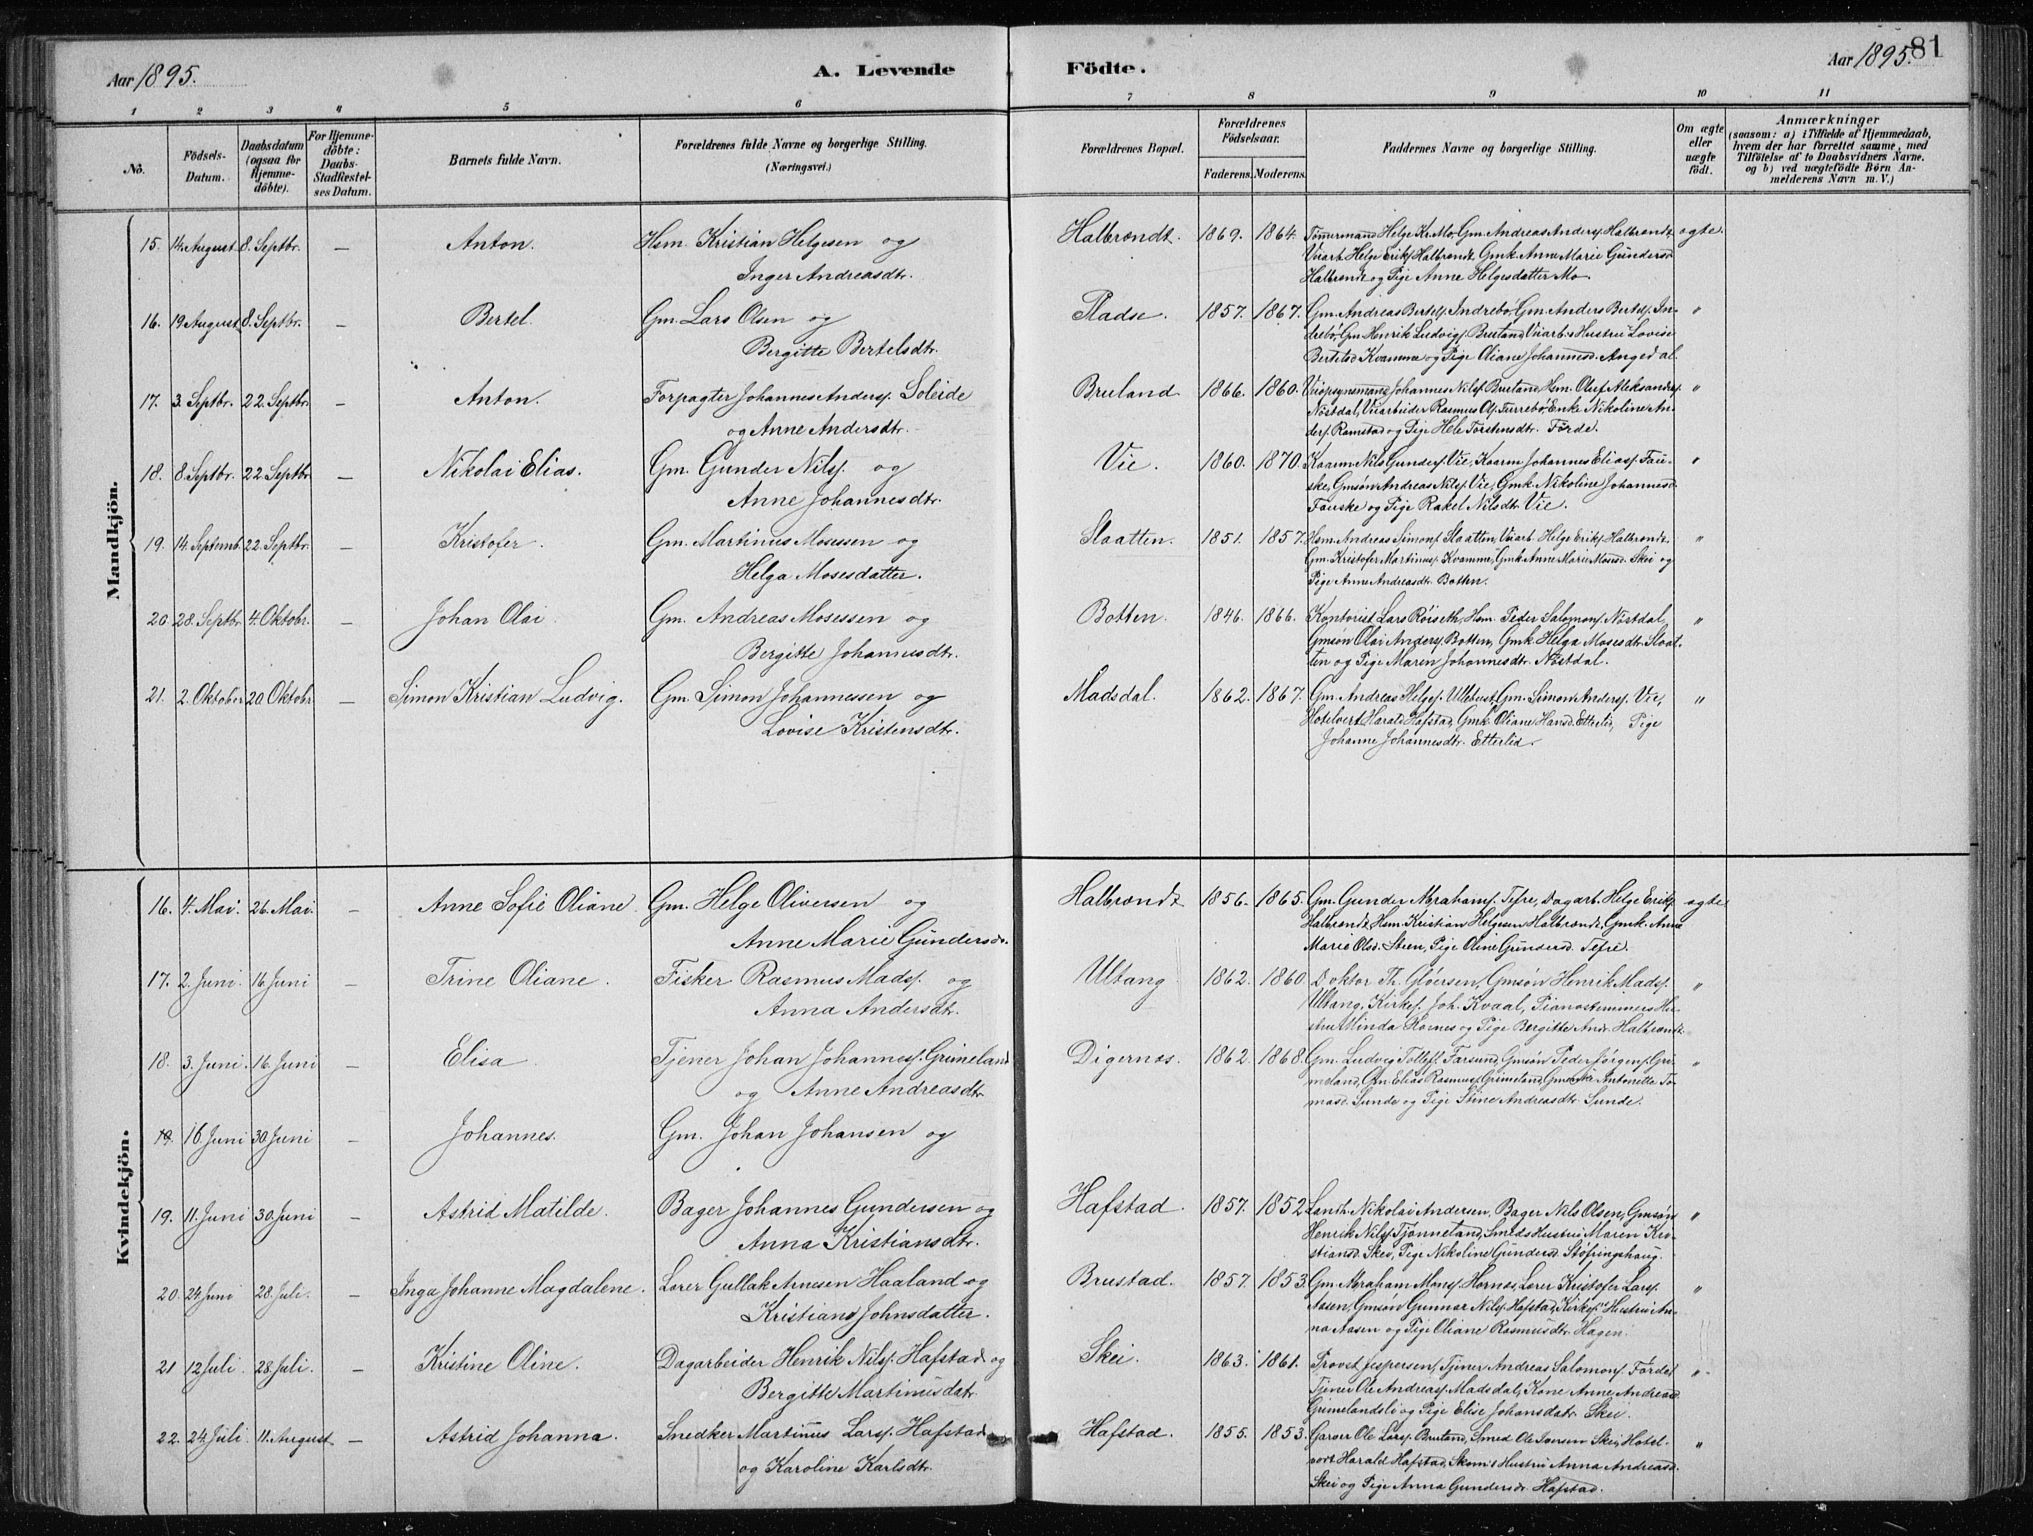 Aar 1895.
A. Levende Födte.
Aar 1895. 81
1 2 3 4 5 6 7 8 9 10 11
No.
Födsels-Datum.
Daabsdatum (ogsaa for Hjemme-döbte).
For Hjemme-döbte: Daabs-Stadfæstel-ses Datum.
Barnets fulde Navn.
Forældrenes fulde Navne og borgerlige Stilling.
(Næringsvei.)
Forældrenes Bopæl.
Forældrenes Födselsaar.
Faderens. Moderens.
Faddernes Navne og borgerlige Stilling.
Om ægte eller uægte födt.
Anmærkninger
(saasom: a) i Tilfælde af Hjemmedaab,
hvem der har forrettet samme, med
Tilföielse af to Daabsvidners Navne.
og b) ved uægtefödte Børn An-
melderens Navn m. V.)
Mandkjön.
15. 14 August 8. Septbr. — Anton. Hsm. Kristian Helgesen og Halbrendt. 1869. 1864. Tömermand Helge Kr. Mo, Gm. Andreas Anders. Halbrendt ægte.
Inger Andreasdtr. Vuarb. Helge Eriks. Halbrendt, Gmk. Anne Marie Gundersd.
Halbrendt og Pige Anne Helgesdatter Mo
16. 19 August 8. Septbr. — Bertel. Gm. Lars Olsen og Pladse. 1857. 1867. Gm. Andreas Bertels. Indrebö, Gm. Anders Bertels. In- "
Bergitte Bertelsdtr. drebö, Gm. Henrik Ludvigs. Bruland, Vuarb. Hustru Lovise
Bertelsd. Kvamme og Pige Oliane Johannesd. Angedal.
17. 3. Septbr. 22. Septbr. — Anton. Forpagter Johannes Anders. Soleide Bruland 1866. 1860. Johannes Nils. Bruland, Hsm. Oluf Aleksanders. "
og Anne Andersdtr. Nöstdal, Vuarbeider Rasmus Ols. Furrebö, Enke Nikoline An-
ders. Ramstad og Pige Hele Torstensdtr. Förde.
18. 8. Septbr. 22. Septbr. — Nikolai Elias. Gm. Gunder Nils. og Vie. 1860. 1870. Kaarm. Nils Gunders. Vie, Kaarm. Johannes Elias. Fau- "
Anne Johannesdtr. ske, Gmsön Andreas Nils. Vie, Gmk. Nikoline Johannesd.
Fauske og Pige Rakel Nilsdtr. Vie.
19. 14. Septemb. 22. Septbr. — Kristofer. Gm. Martinus Mosesen og Slaatten. 1851. 1857. Hsm. Andreas Simons. Slaatten, Vuarb. Helge Eriks. Halbrendt, "
Helga Mosesdatter. Gm. Kristofer Martinus. Kvamme, Gmk. Anne Marie Monsd. Skei og
Pige Anne Andreasdtr. Botten.
20. 28. Septbr. 4. Oktobr. — Johan Olai. Gm. Andreas Mosessen og Botten. 1846. 1866. Kontorist Lars Röiseth, Hsm. Peder Salomons. Nöstdal, "
Bergitte Johannesdtr. Gmsön Olai Anders. Botten, Gmk. Helga Mosesdtr. Slaat-
ten og Pige Maren Johannesdtr. Nöstdal.
21. 2. Oktober 20. Oktobr. — Simon Kristian Ludvig. Gm. Simon Johannessen og Madsdal. 1862. 1867. Gm. Andreas Helges. Ulltveit, Gm. Simon Anders. Vie, "
Lovise Kristensdtr. Hotelvert Harald Hafstad, Gmk. Oliane Hansd. Etterlid, Pige
Johanne Johannesdtr. Etterlid.
Kvindekjön.
16. 4. Mai. 26. Mai. — Anne Sofie Oliane. Gm. Helge Oliversen og Halbrendt 1856. 1865. Gm. Gunder Abrahams. Tefre, Dagarb. Helge Eriks. ægte
Anne Marie Gundersd. Halbrendt, Hsm. Kristian Helgesen Halbrendt, Gmk. Anne
Marie Olsd. Steen, Pige Oline Gundersd. Tefre.
17. 2. Juni. 16 Juni — Trine Oliane. Fisker Rasmus Mads. og Ultang 1862. 1860. Doktor Th. Glöersen, Gmsön Henrik Mads. "
Anna Andersdtr. Ultang, Kirkes. Joh. Kvaal, Pianostemmers Hu-
stru Minda Hornes og Pige Bergitte Andr. Halbrendt.
18. 3. Juni. 16. Juni — Elisa Tjener Johan Johannes. Grimeland Digernes. 1862. 1868. Gm. Ludvig Tollefs. Farsund, Gmsön Peder Jörgens. Gri- "
og Anne Andreasdtr. meland, Gm. Elias Rasmus. Grimeland, Antonette To-
masd. Sunde og Pige Stine Andreasdtr. Sunde.
19. 16. Juni 30. Juni — Johannes. Gm. Johan Johansen og
19. 11. Juni 30. Juni — Astrid Matilde. Bager Johannes Gundersen og Hafstad. 1857. 1852. Nikolai Andersen, Bager Nils Olsen, Gmsön "
Anna Kristiansdtr. Henrik Nils. Tjönneland, Smeds Hustru Maren Kri-
stiansd. Skei, Pige Nikoline Gundersd. Stöfringshaug.
20. 24 Juni 28. Juli. — Inga Johanne Magdalene. Lærer Gullak Arnesen Haaland og Brustad. 1857. 1853. Gm. Abraham Mons. Hornes, Lærer Kristofer Lars. "
Kristiane Johnsdatter. Aasen, Gmsön Gunnar Nils. Hafstad, Kirkes. Hustru An-
na Aasen og Pige Oliane Rasmusdtr. Hagen.
21 12 Juli. 28. Juli. — Kristine Oline. Dagarbeider Henrik Nils. Hafstad og Skei. 1863. 1861. Provst Jespersen, Tjener Andreas Salomons. Förde, "
Bergitte Martinusdatr. Tjener Ole Andreas. Madsdal, Kone Anne Andreasd.
Grimelandsli og Pige Elise Johansdatr. Skei.
22. 24. Juli. 11. August — Astrid Johanna. Snedker Martinus Lars. Hafstad Hafstad. 1855. 1853. Garver Ole Lars. Bruland, Smed Ole Iversen Skei, Hotel- "
og Karoline Karlsdtr. vert Harald Hafstad, Skom.s Hustru Anna Andreasd.
Skei og Pige Anna Gundersdr. Hafstad.